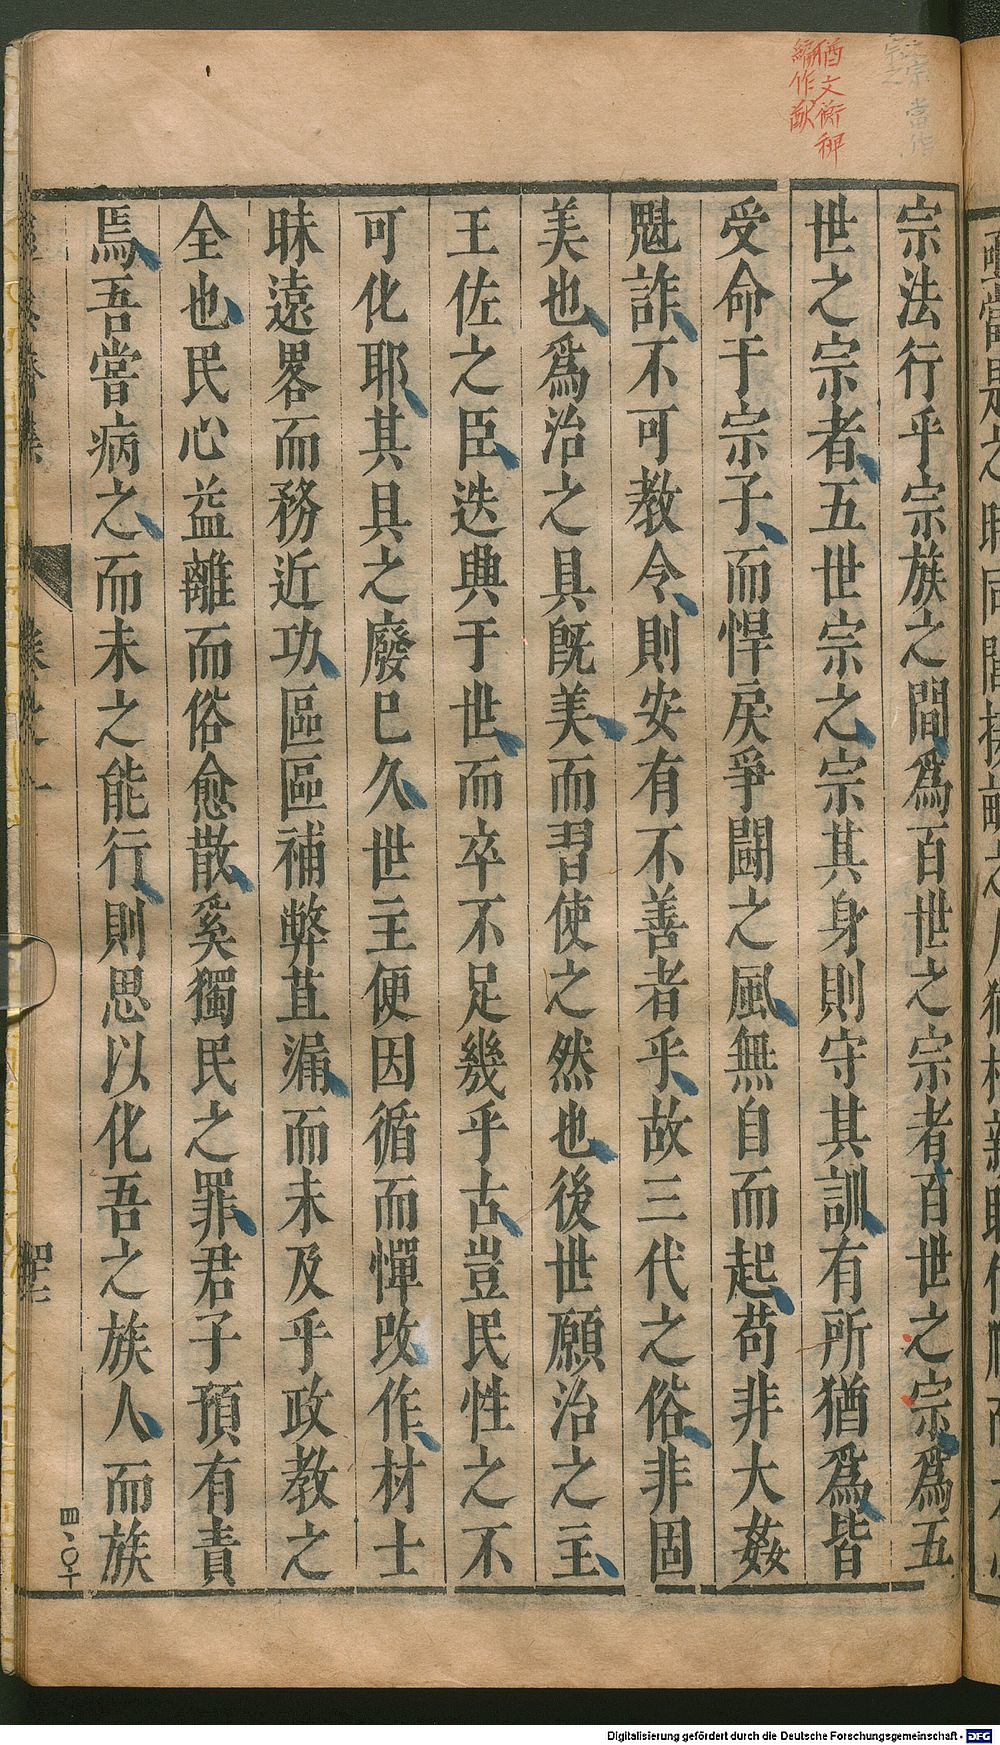 猶文衡裨
編作猷
宗法行乎宗族之間爲百世之宗者百世之宗爲五
世之宗者五世宗之宗其身則守其訓有所猶爲皆
受命于宗子而悍戾爭鬪之風無自而起苟非大姦
魁詐不可教令則安有不善者乎故三代之俗非固
美也爲治之具旣美而習使之然也後世願治之主
王佐之臣迭興于世而卒不足幾乎古豈民性之不
可化耶其具之廢已久世主便因循而憚改作材士
昧遠畧而務近功區區補弊苴漏而未及乎政教之
全也民心益離而俗愈散奚獨民之罪君子預有責
焉吾嘗病之而未之能行則思以化吾之族人而族
Digitalisierung gefördert durch die Deutsche Forschungsgemeinschaft - DFG